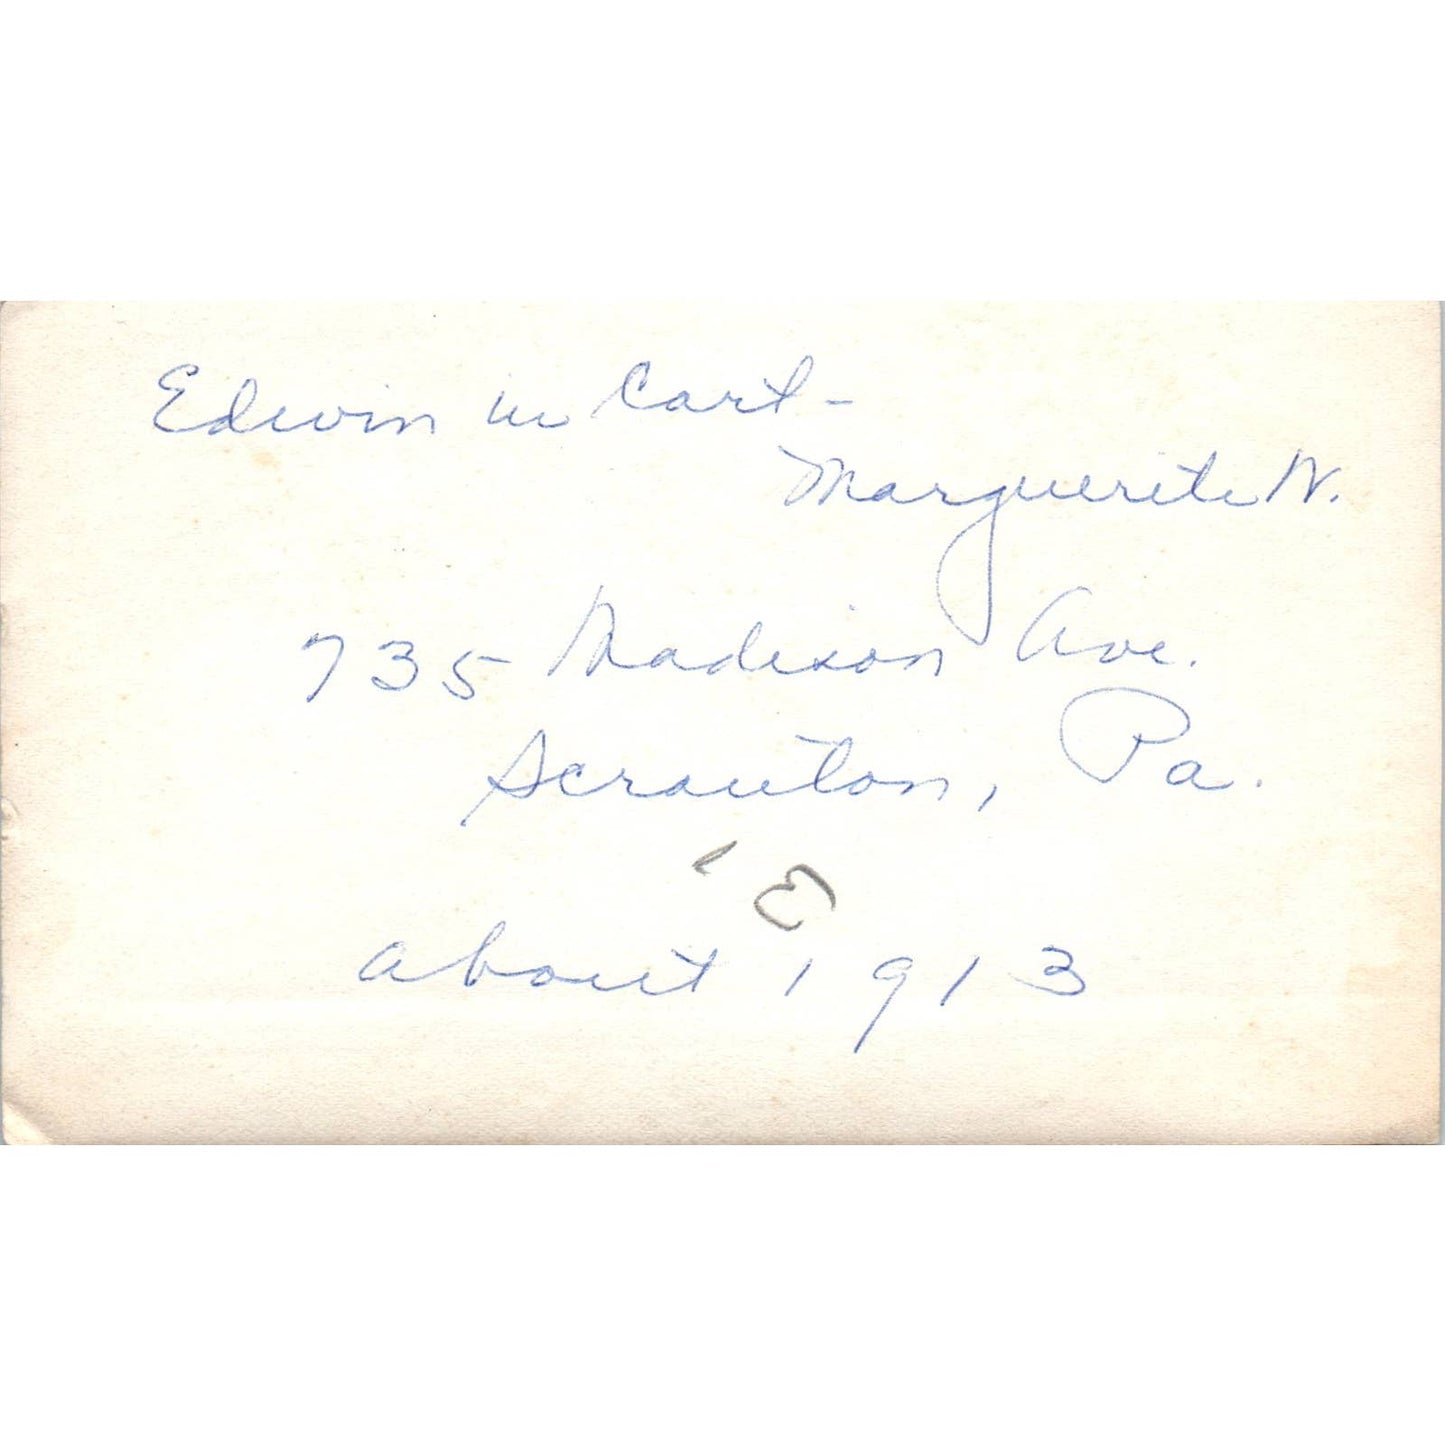 Edwin in Cart -
Marguerite N.
735 Madison Ave.
Scranton, Pa.
about 1913